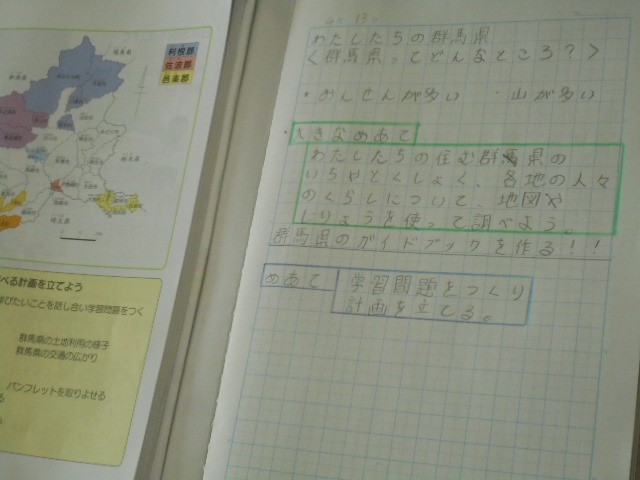 利根郡
佐波郡
邑楽郡
べる計画を立てよう
学びたいことを話し合い学習問題をつく
群馬県の土地利用の様子
群馬県の交通の広がり
パンフレットを取りよせる
わたしたちの群馬県
<群馬県ってどんなところ?>
・おんせんが多い ・山が多い
・大きなめあて
わたしたちの住む群馬県の
いちやとくしょく、各地の人々
のくらしについて、地図や
しりょうを使って調べよう。
群馬県のガイドブックを作る!!
めあて 学習問題をつくり
計画を立てる。